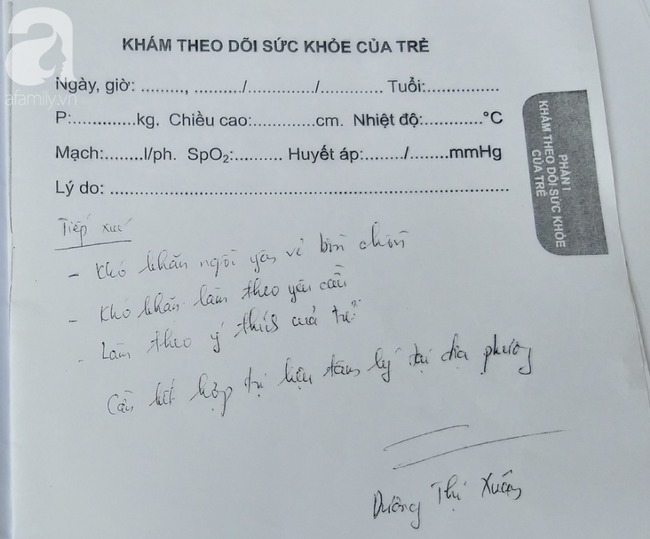 a
afamily.vn
KHÁM THEO DÕI SỨC KHỎE CỦA TRẺ
Ngày, giờ: ........., ........../............./............ Tuổi:................
P:..............kg. Chiều cao:..............cm. Nhiệt độ:.............°C
Mạch:........l/ph. SpO₂:........... Huyết áp:......./........mmHg
Lý do: ...............................................................................
PHẦN I
KHÁM THEO DÕI SỨC KHỎE
CỦA TRẺ
Tiếp xúc
- Khó khăn ngồi yên vẻ bồn chồn
- Khó khăn làm theo yêu cầu
- Làm theo ý thích của trẻ
Cần kết hợp trị liệu tâm lý tại địa phương
Dương Thị Xuân